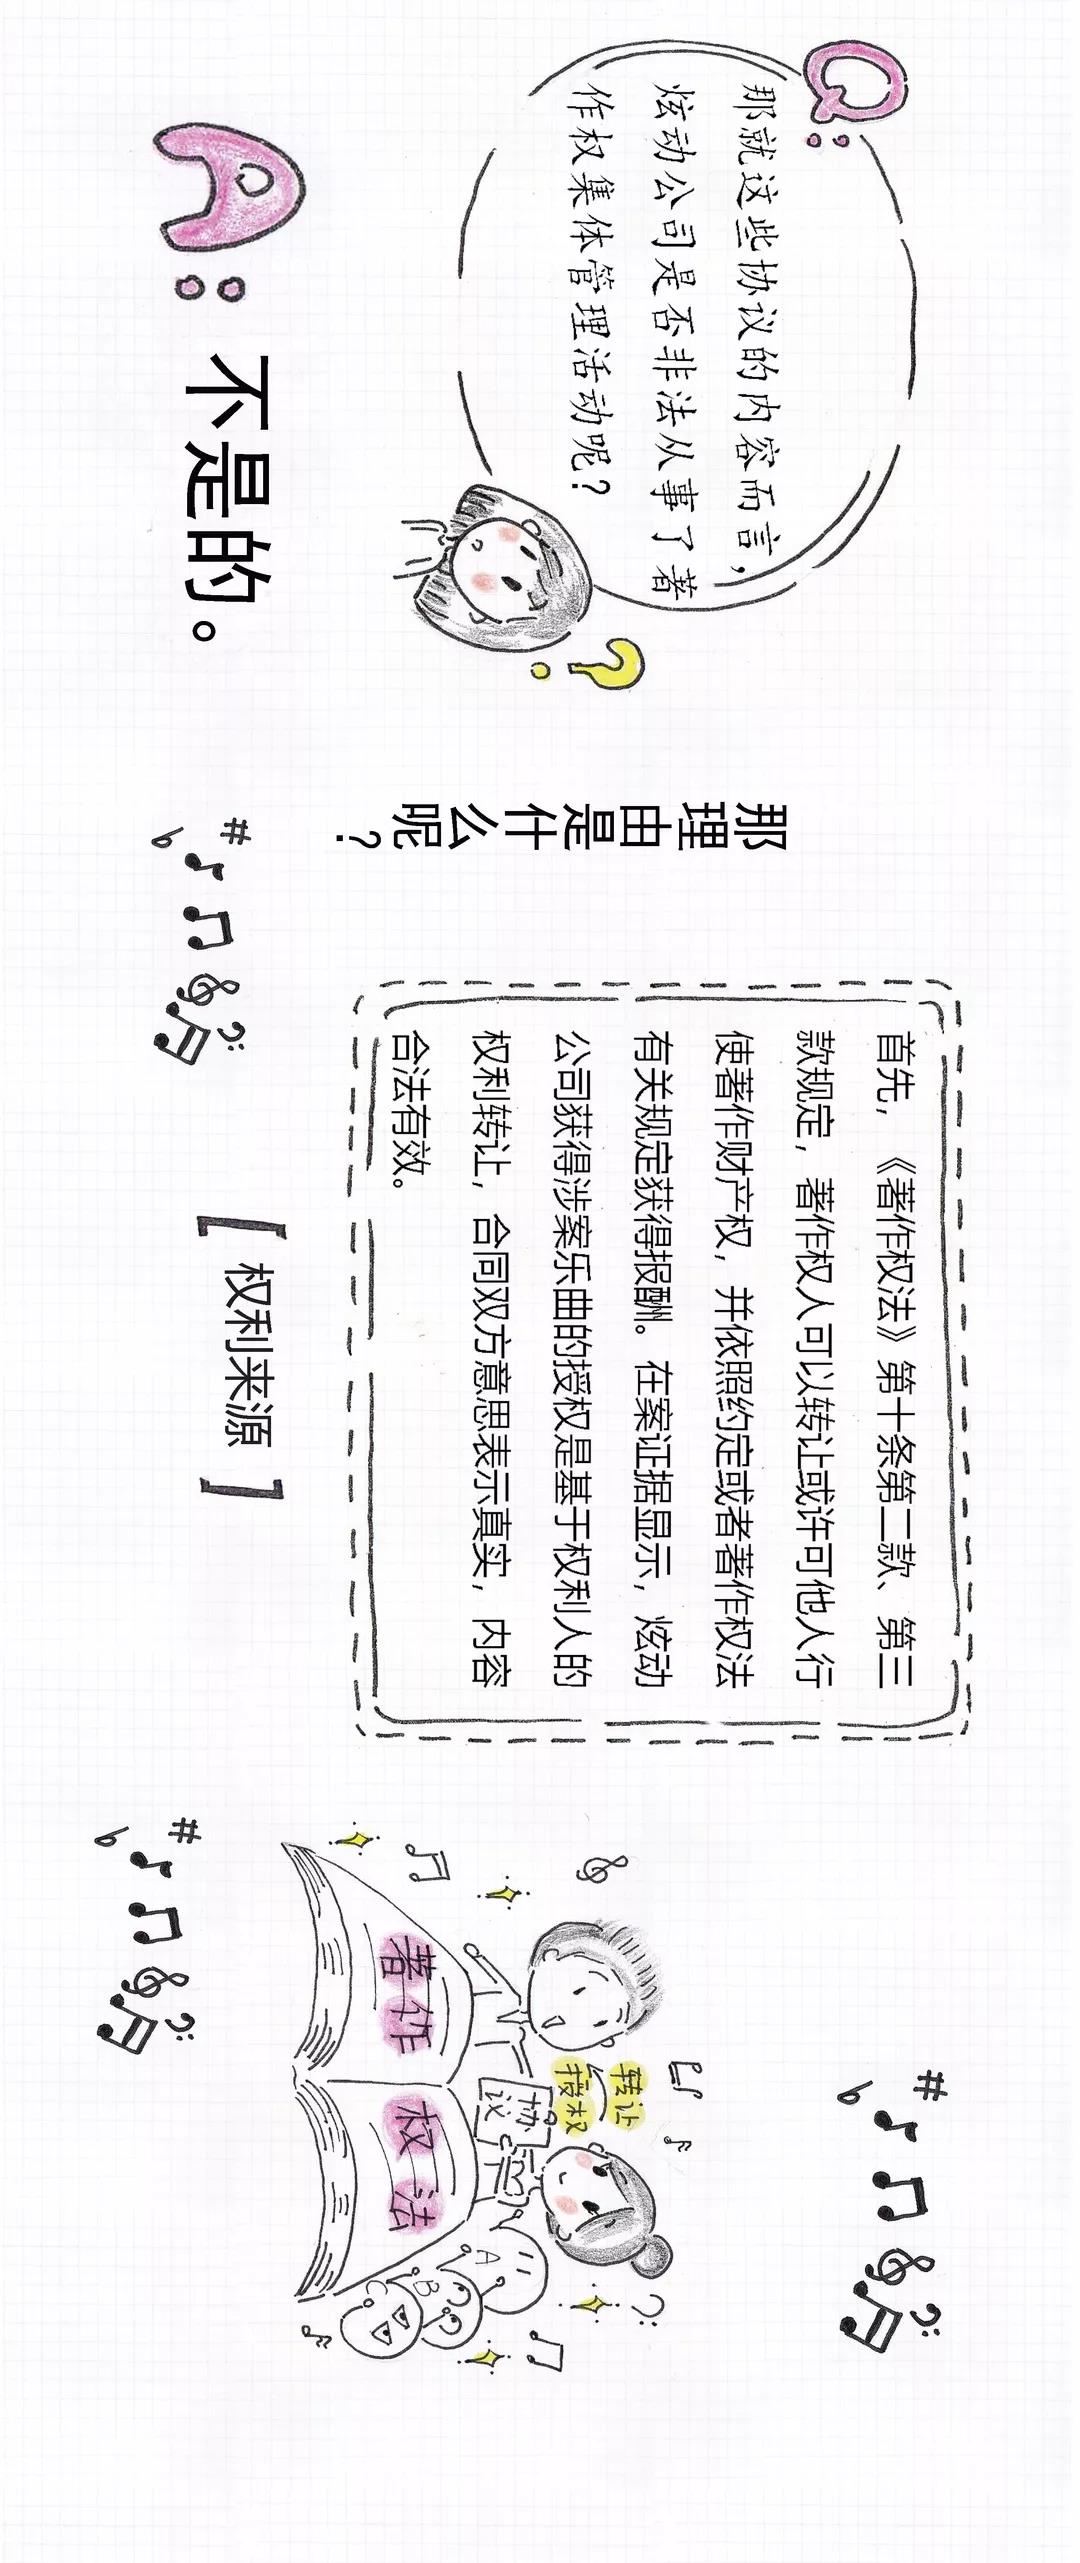 Q:
那就这些协议的内容而言,
炫动公司是否非法从事了著
作权集体管理活动呢?
?
A:
不是的。
那理由是什么呢?
首先，《著作权法》第十条第二款、第三
款规定，著作权人可以转让或许可他人行
使著作财产权，并依照约定或者著作权法
有关规定获得报酬。在案证据显示，炫动
公司获得涉案乐曲的授权是基于权利人的
权利转让，合同双方意思表示真实，内容
合法有效。
[ 权利来源 ]
转让
授权
协
议
A
B
C
著作权法